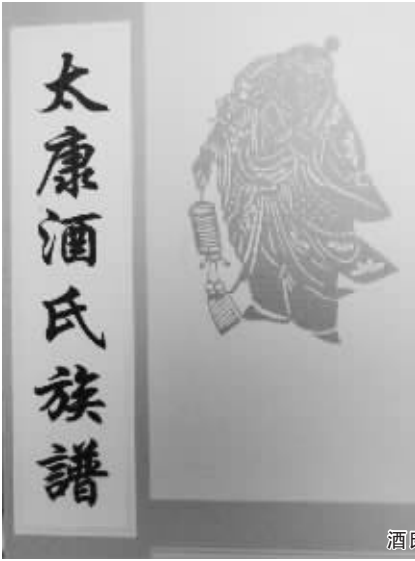 太康酒氏族譜
酒